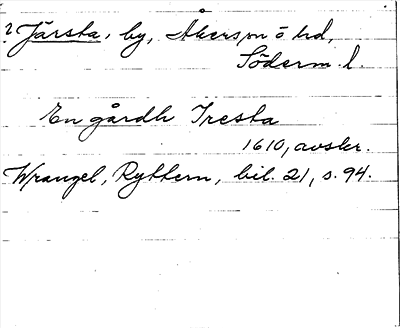 ? Järsta, by, Åkerspn ö hd,
Söderm. l.
En gårdh Iresta
1610, avskr.
Wrangel, Ryttern, bil. 21, s. 94.